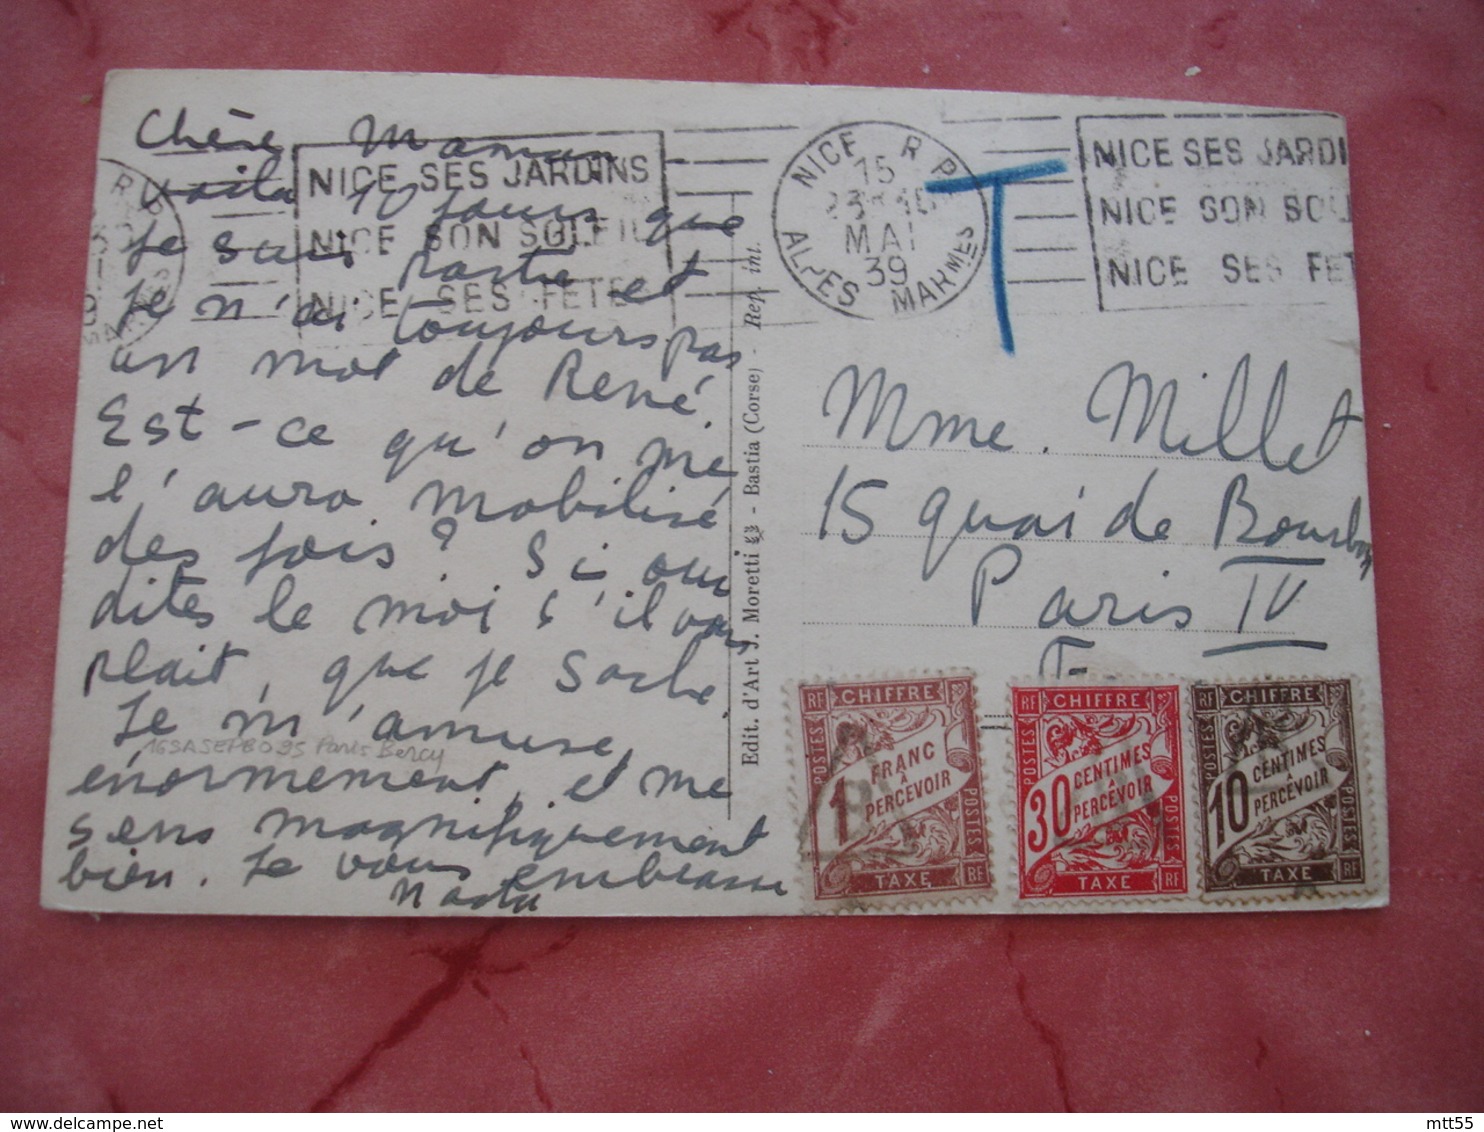 Chère Maman
voila 10 jours que
je suis partie et
je n'ai toujours pas
un mot de René.
Est-ce qu'on me
l'aura mobilisé
des fois? Si oui
dites le moi s'il vous
plait, que je sache
Je m'amuse
énormement, et me
sens magnifiquement
bien. Je vous embrasse
NICE SES JARDINS
NICE SON SOLEIL
NICE SES FETE
NICE R P
15
MAI
39
ALPES MARMES
T
NICE SES JARDI
NICE SON SOL
NICE SES FET
Edit. d'Art J. Moretti - Bastia (Corse) - Rep. int.
Mme. Millet
15 quai de Bourbon
Paris IV
Paris Bercy
RF CHIFFRE
POSTES
1 FRANC
À
PERCEVOIR
POSTES
TAXE RF
RF CHIFFRE
POSTES
30 CENTIMES
À
PERCEVOIR
POSTES
TAXE RF
RF CHIFFRE
POSTES
10 CENTIMES
À
PERCEVOIR
POSTES
TAXE RF
mtt55